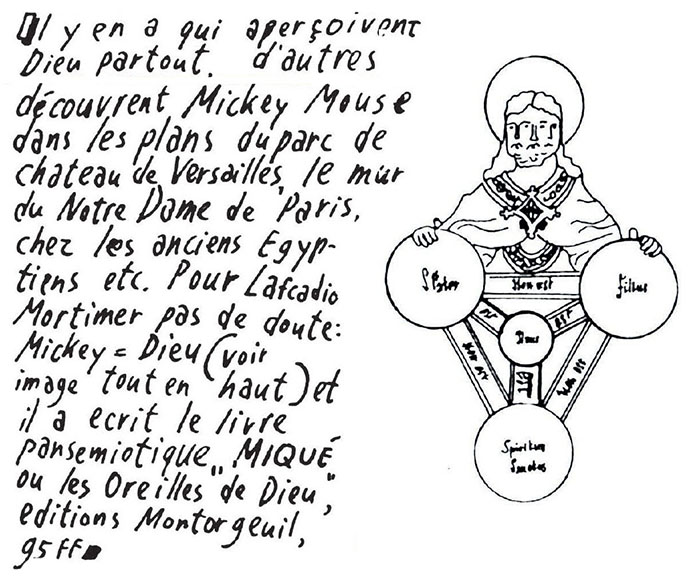 Il y en a qui aperçoivent
Dieu partout. d'autres
découvrent Mickey Mouse
dans les plans du parc de
chateau de Versailles, le mur
du Notre Dame de Paris,
chez les anciens Egyp-
tiens etc. Pour Lafcadio
Mortimer pas de doute:
Mickey = Dieu (voir
image tout en haut) et
il a ecrit le livre
pansemiotique „MIQUÉ
ou les Oreilles de Dieu",
editions Montorgeuil,
95 FF
Pater
Non est
Filius
est
est
Deus
Non est
est
Non est
Spiritus
Sanctus